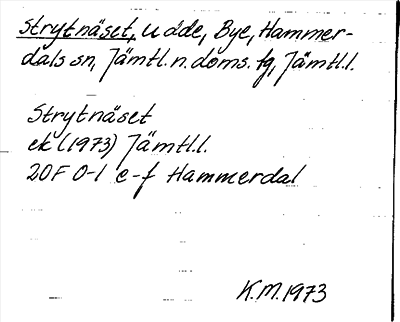 Strytnäset, udde, Bye, Hammer-
dals sn, Jämtl. n. doms. fg, Jämtl.l.
Strytnäset
ek (1973) Jämtl.l.
20F 0-1 e-f Hammerdal
K.M. 1973